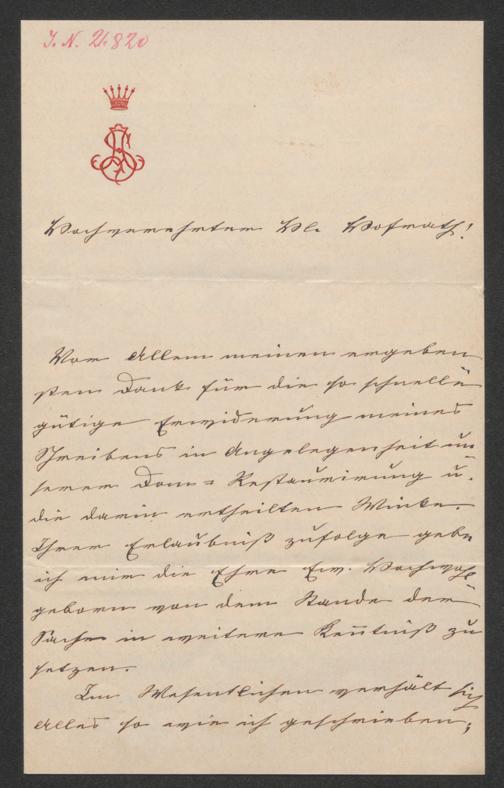 J. N. 21.820
Hochverehrter H. Hofrath!
Vor Allem meinen ergeben
sten Dank für die so schnelle u.
gütige Erwiderung meines
Schreibens in Angelegenheit un
serer Dom=Restaurirung u.
die darin ertheilten Winke.
Ihrer Erlaubniß zufolge gebe
ich mir die Ehre Euer Hochwohl
geborn von dem Stande der
Sache in weitere Kenntniß zu
setzen.
Im Wesentlichen verhält sich
Alles so wie ich geschrieben;